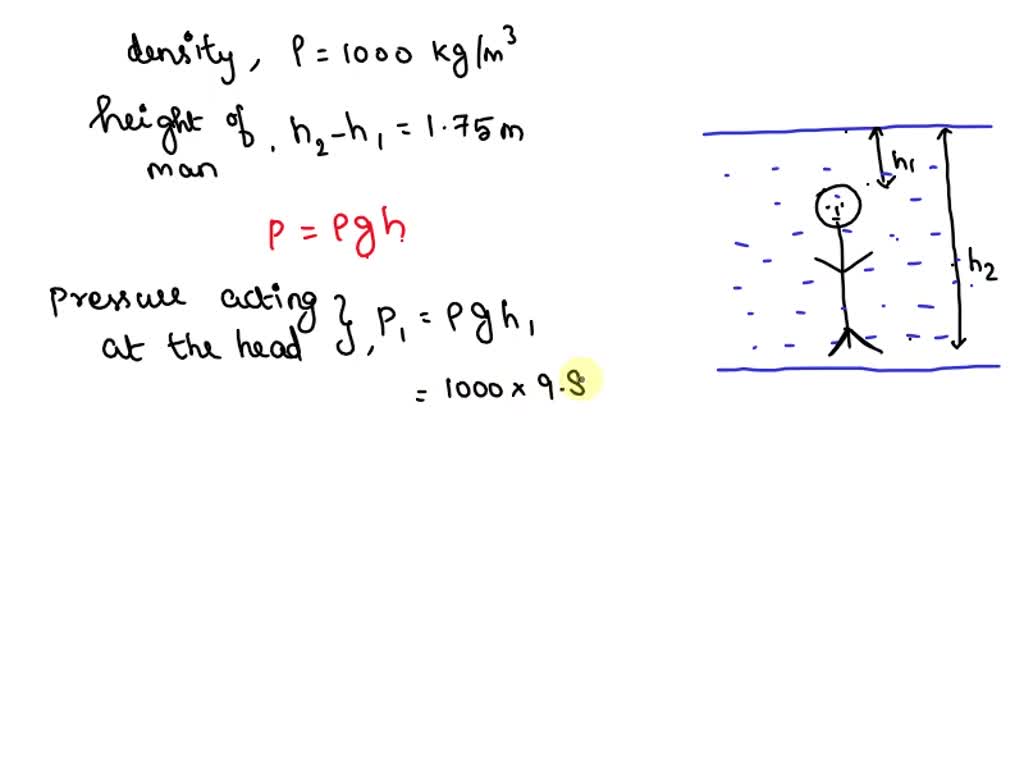 density, ρ = 1000 kg/m³
height of man, h₂-h₁ = 1.75 m
P = ρgh
Pressure acting at the head }, P₁ = ρgh₁
= 1000 × 9.8
h₁
h₂